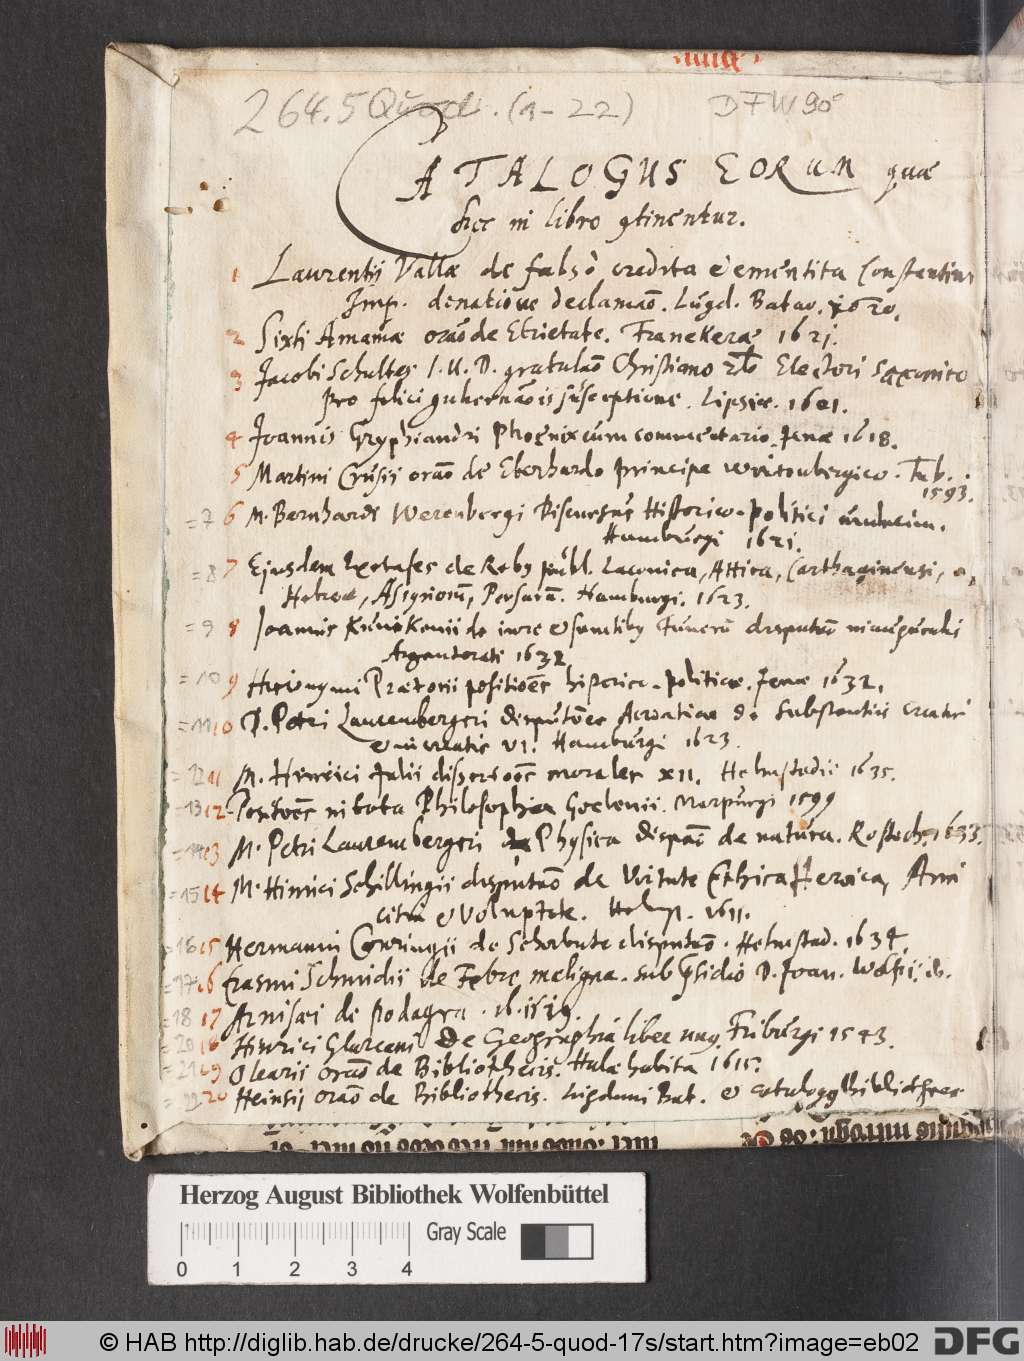 264.5 Quod. (1-22) DFW 90
CATALOGUS EORUM quae
hic in libro gtinentur.
1 Laurentij Vallae de falso credita et ementita Constantini
Imp. donatione declamaō. Lugd. Batav. 1620.
2 Sixti Amamae oraō de Ebrietate. Franekerae 1621.
3 Jacobi Schultes I. U. D. gratulaō Christiano Electori Saxonico
pro felici gubernaōis susceptione. Lipsiae. 1601.
4 Joannis Gryphiandri Phoenix cum commentario. Jenae 1618.
5 Martini Crusii oraō de Eberhardo principe Wirtenbergico. Tub.
1593.
=7 6 M. Bernhardi Werenbergi Discursus Historico-politici
Hamburgi 1621.
=8 7 Ejusdem de Rebus publ. Laconica, Attica, Carthaginensi,
Hebraea, Assyriorum, Persarum. Hamburgi. 1623.
=9 8 Joannis de iure et Funerum
Argentorati 1632
=10 9 Hieronymi Praetorii positiões historico-politicae. Jenae 1632.
=11 10 D. Petri Laurembergeri de Substantiis
VI. Hamburgi 1623.
=12 11 M. Hinrici Julii morales XII. Helmstadii 1635.
=13 12 in tota Philosophia Goclenii. Marpurgi 1599
=14 13 M. Petri Laurembergeri Physica de natura. Rostoch. 1633.
=15 14 M. Hinrici Schillingii disputaō de Virtute Ethica Heroica, Ami
citia et Voluptate. 1611.
=16 15 Hermanni Conringii de Scherbuto disputaō. Helmstad. 1634.
=17 16 Erasmi Schmidii de Febre maligna. sub Psidio D. Joan. Wolfii. ib.
=18 17 Arnisaei de podagra. ib.
=20 18 Hinrici Glareani De Geographia liber unus. Friburgi 1543.
=21 19 Olearii oraō de Bibliothecis. Halae habita 1615.
=22 20 Heinsij oraō de Bibliothecis. Lugduni Bat. et
Herzog August Bibliothek Wolfenbüttel
Gray Scale
0 1 2 3 4
© HAB http://diglib.hab.de/drucke/264-5-quod-17s/start.htm?image=eb02 DFG